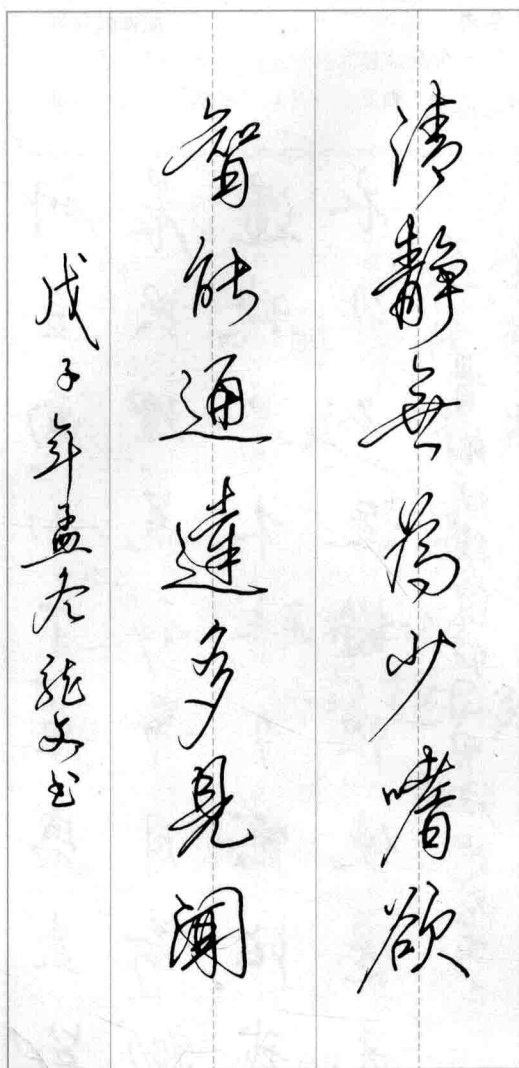 清靜無為少嗜欲
智能通達多見聞
戊子年孟冬龍文书